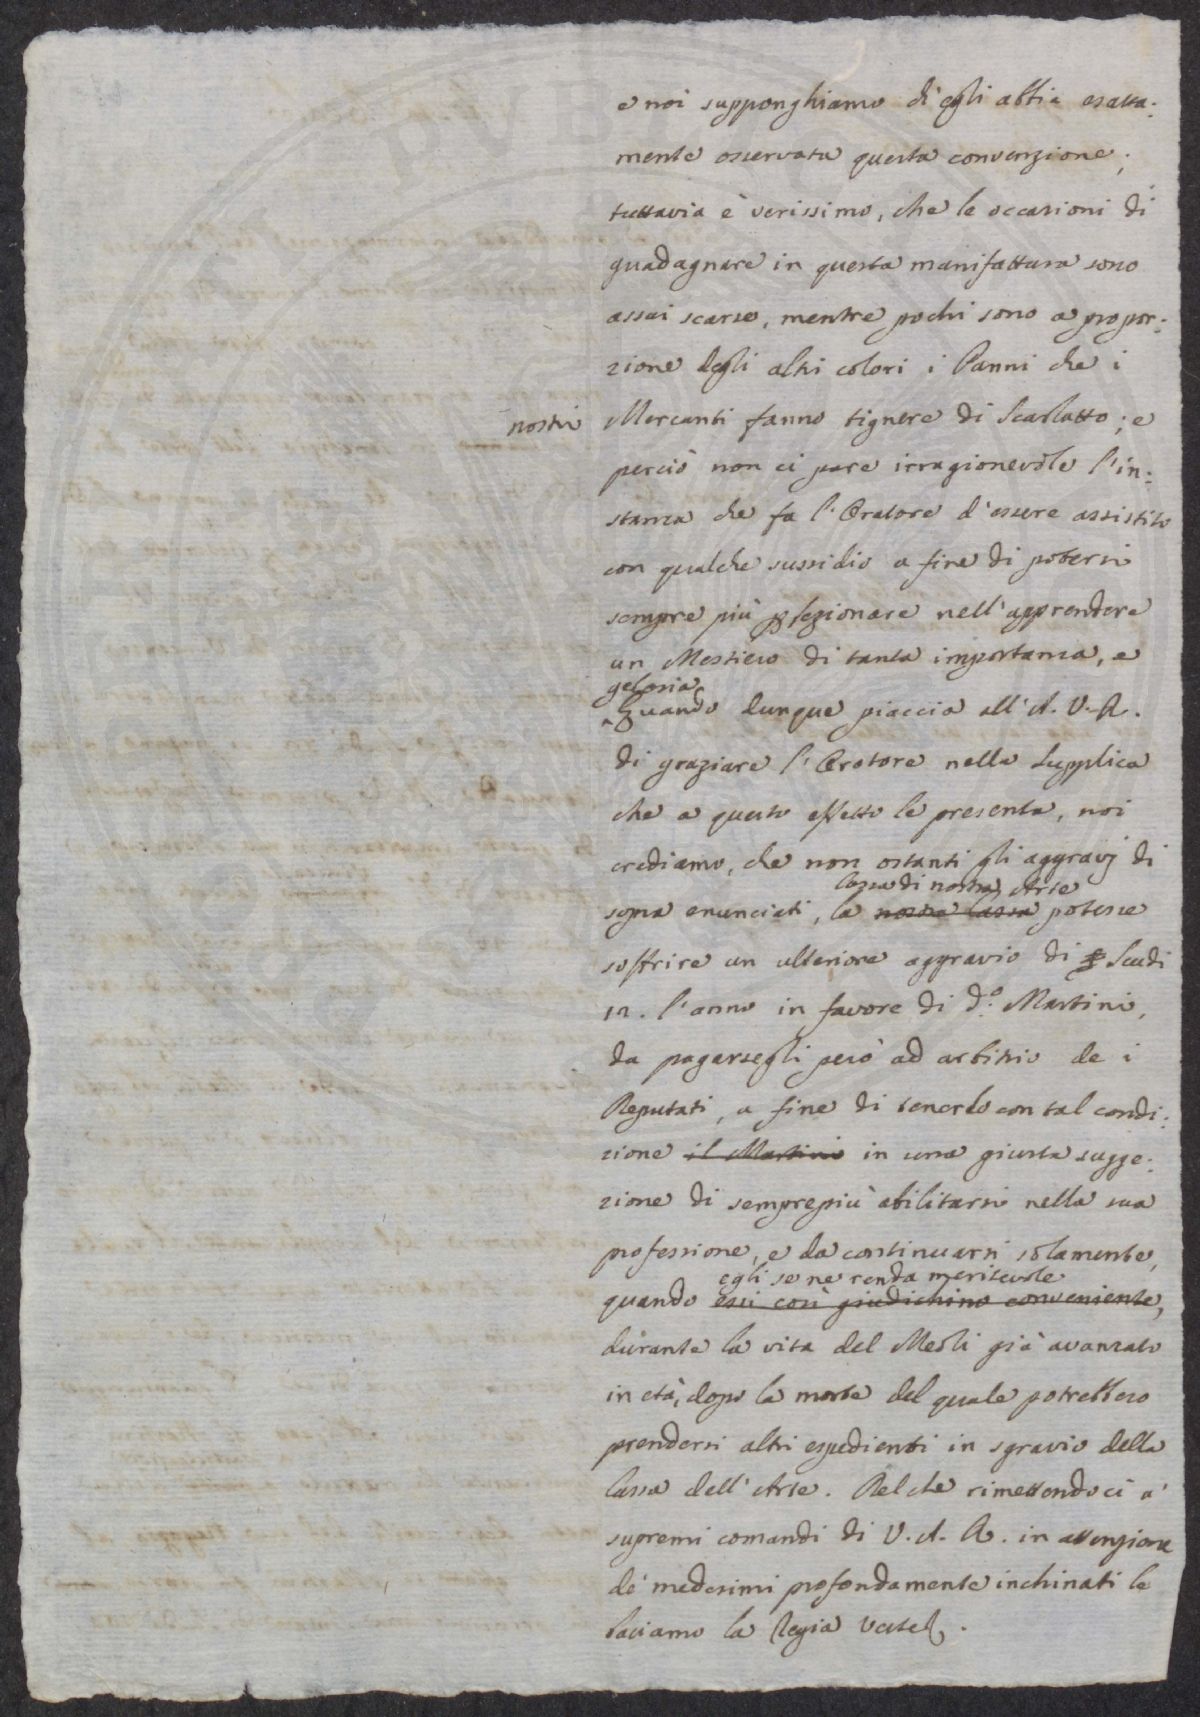 e noi supponghiamo ch'egli abbia esatta:
mente osservata questa convenzione;
tuttavia è verissimo, che le occasioni di
guadagnare in questa manifattura sono
assai scarse, mentre pochi sono a propor:
zione degli altri colori i Panni che i
nostri Mercanti fanno tignere di Scarlatto; e
perciò non ci pare irragionevole l'in:
stanza che fa l'Oratore d'essere assistito
con qualche sussidio a fine di potersi
sempre più pfezionare nell'apprendere
un Mestiero di tanta importanza, e
gelosia
Quando dunque piaccia all'A. V. R.
di graziare l'Oratore nella Supplica
che a questo effetto le presenta, noi
crediamo, che non ostanti gli aggravj di
Cassa di nostra Arte
sopra enunciati, la nostra Cassa potesse
soffrire un ulteriore aggravio di Scudi
12. l'anno in favore di d.o Martini,
da pagarsegli però ad arbitrio de i
Deputati, a fine di tenerlo con tal condi:
zione il Martini in una giusta sugge:
zione di semprepiù abilitarsi nella sua
professione, e da continuarsi solamente,
egli se ne renda meritevole
quando essi così giudichino conveniente,
durante la vita del Meoli già avanzato
in età, dopo la morte del quale potrebbero
prendersi altri espedienti in sgravio della
Cassa dell'Arte. Del che rimettendoci a'
supremi comandi di V. A. R. in attenzione
de' medesimi profondamente inchinati le
baciamo la Regia Veste.